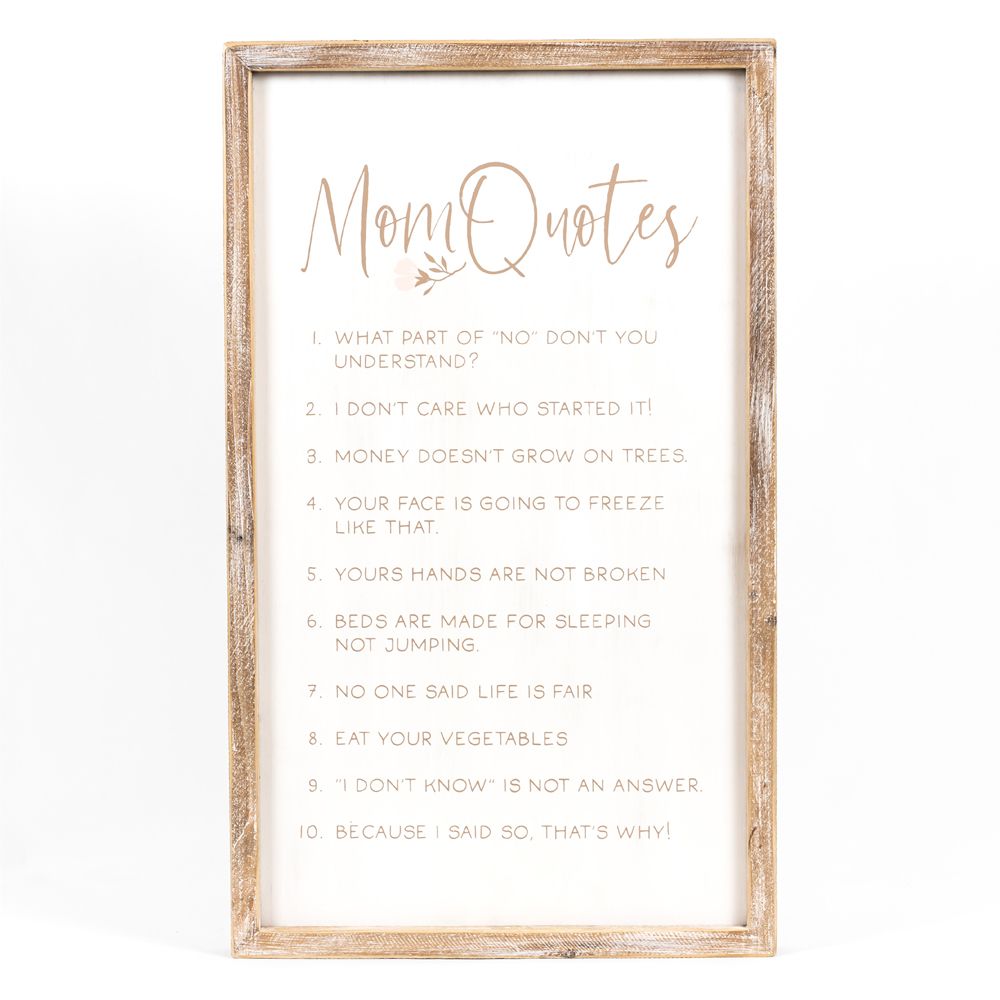 Mom Quotes
1. WHAT PART OF "NO" DON'T YOU
UNDERSTAND?
2. I DON'T CARE WHO STARTED IT!
3. MONEY DOESN'T GROW ON TREES.
4. YOUR FACE IS GOING TO FREEZE
LIKE THAT.
5. YOURS HANDS ARE NOT BROKEN
6. BEDS ARE MADE FOR SLEEPING
NOT JUMPING.
7. NO ONE SAID LIFE IS FAIR
8. EAT YOUR VEGETABLES
9. "I DON'T KNOW" IS NOT AN ANSWER.
10. BECAUSE I SAID SO, THAT'S WHY!